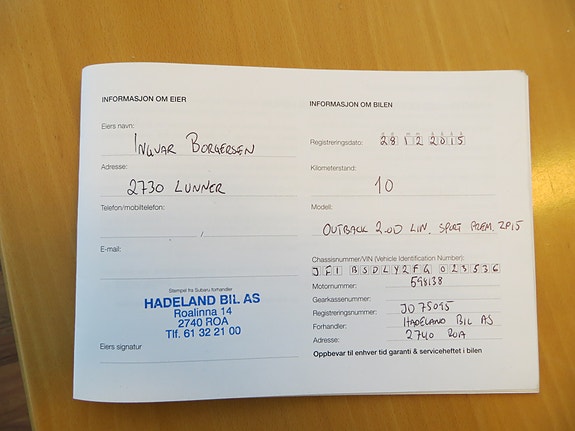 INFORMASJON OM EIER
Eiers navn:
INGVAR BORGERSEN
Adresse:
2730 LUNNER
Telefon/mobiltelefon:
/
E-mail:
Stempel fra Subaru forhandler
HADELAND BIL AS
Roalinna 14
2740 ROA
Tlf. 61 32 21 00
Eiers signatur
INFORMASJON OM BILEN
Registreringsdato: 28 12 2015
Kilometerstand:
10
Modell:
OUTBACK 2.0D LIN. SPORT PREM. ZP15
Chassisnummer/VIN (Vehicle Identification Number):
JF1 BSDLY2FG 023536
Motornummer: 598138
Gearkassenummer:
Registreringsnummer: JD 75095
Forhandler: HADELAND BIL AS
Adresse: 2740 ROA
Oppbevar til enhver tid garanti & serviceheftet i bilen